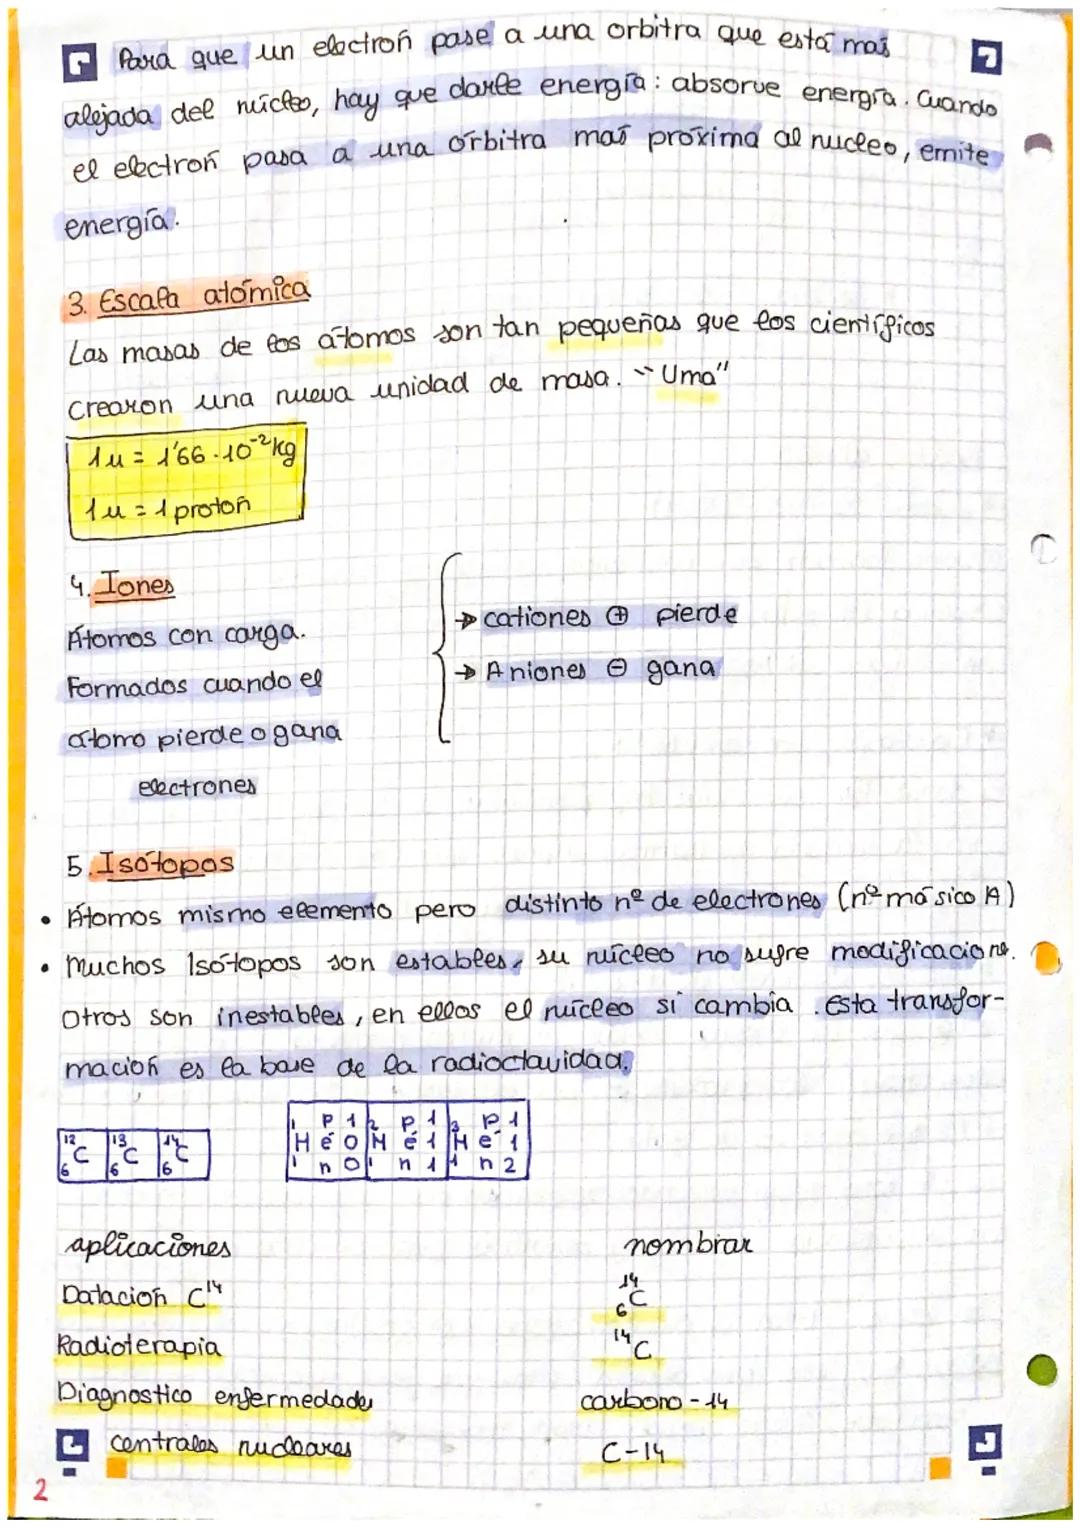 Para que un electrón pase a una orbitra que está más
alejada del núcleo, hay que darle energía: absorve energía. Cuando
el electrón pasa a una órbitra más próxima al nucleo, emite
energía.
3. Escala atómica
Las masas de los átomos son tan pequeñas que los científicos
crearon una nueva unidad de masa. "Uma"
1u = 1'66 · 10⁻² kg
1u = 1 protón
4. Iones
Átomos con carga.
Formados cuando el
átomo pierde o gana
electrones
→ cationes ⊕ pierde
→ Aniones ⊖ gana
5. Isótopos
• Átomos mismo elemento pero distinto nº de electrones (nº másico A)
• Muchos Isótopos son estables, su núcleo no sufre modificacione.
Otros son inestables, en ellos el núcleo si cambia. esta transfor-
mación es la base de la radioctavidad.
¹²₆C ¹³₆C ¹⁴₆C
¹₁H p 1 é 0 n 0 ²₁H p 1 é 1 n 1 ³₁H p 1 é 1 n 2
aplicaciones
Datación C¹⁴
Radioterapia
Diagnostico enfermedade
centrales nucleares
nombrar
¹⁴₆C
¹⁴C
carbono - 14
C-14
2